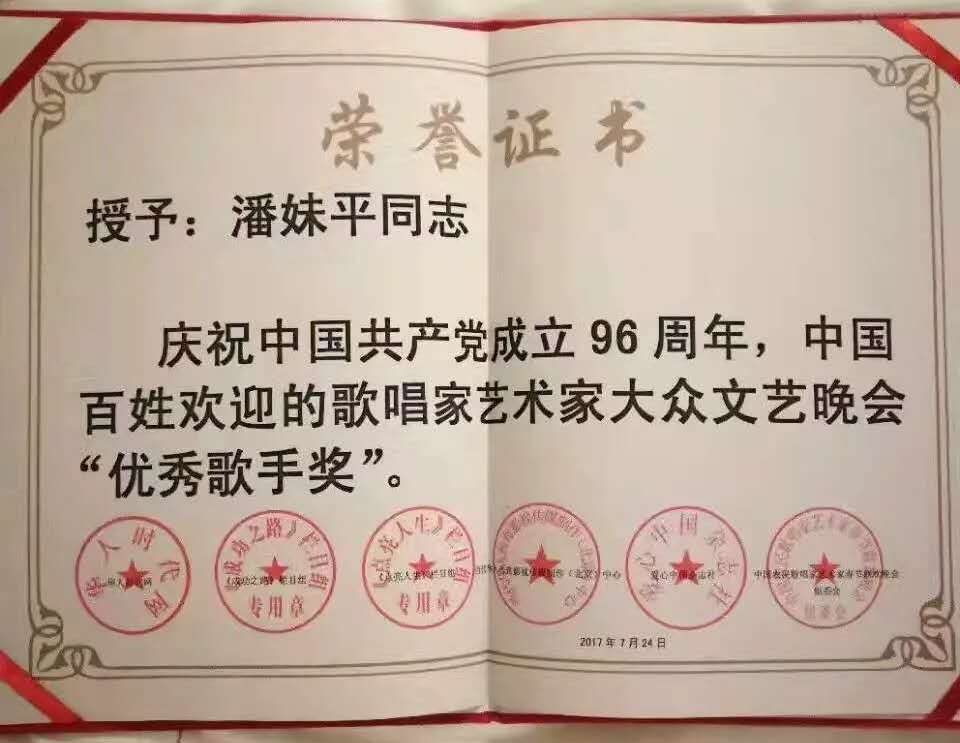 荣誉证书
授予：潘妹平同志
庆祝中国共产党成立96周年，中国
百姓欢迎的歌唱家艺术家大众文艺晚会
“优秀歌手奖”。
人时代网
《成功之路》栏目组
专用章
《点亮人生》栏目组
专用章
影视传媒 （北京）中心
爱心中国杂志社
中国 歌唱家艺术家春节联欢晚会
组委会
2017年7月24日